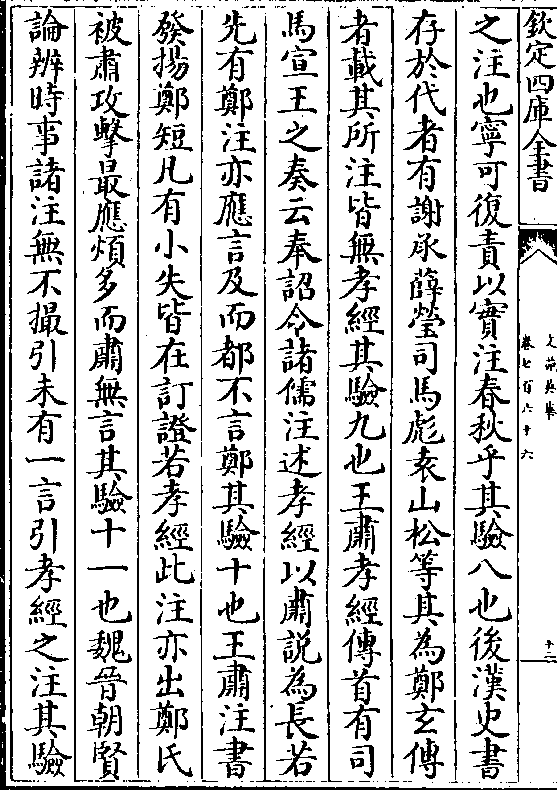 欽定四庫全書
文苑英華
卷七百六十六
十二
之注也寧可復責以實注春秋乎其驗八也後漢史書
存於代者有謝承薛瑩司馬彪袁山松等其為鄭玄傳
者載其所注皆無孝經其驗九也王肅孝經傳首有司
馬宣王之奏云奉詔令諸儒注述孝經以肅説為長若
先有鄭注亦應言及而都不言鄭其驗十也王肅注書
發揚鄭短凡有小失皆在訂證若孝經此注亦出鄭氏
被肅攻擊最應煩多而肅無言其驗十一也魏晉朝賢
論辨時事諸注無不撮引未有一言引孝經之注其驗